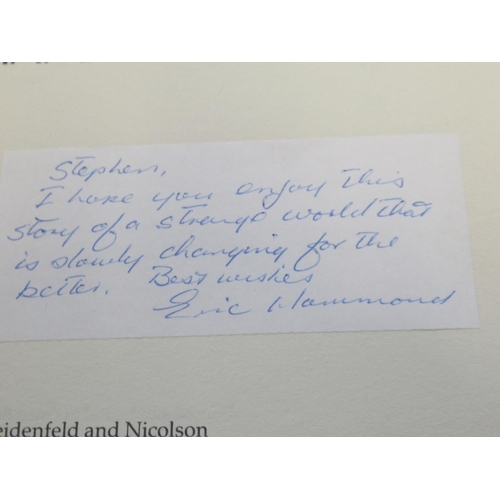 Stephen,
I hope you enjoy this
story of a strange world that
is slowly changing for the
better. Best wishes
Eric Hammond
eidenfeld and Nicolson